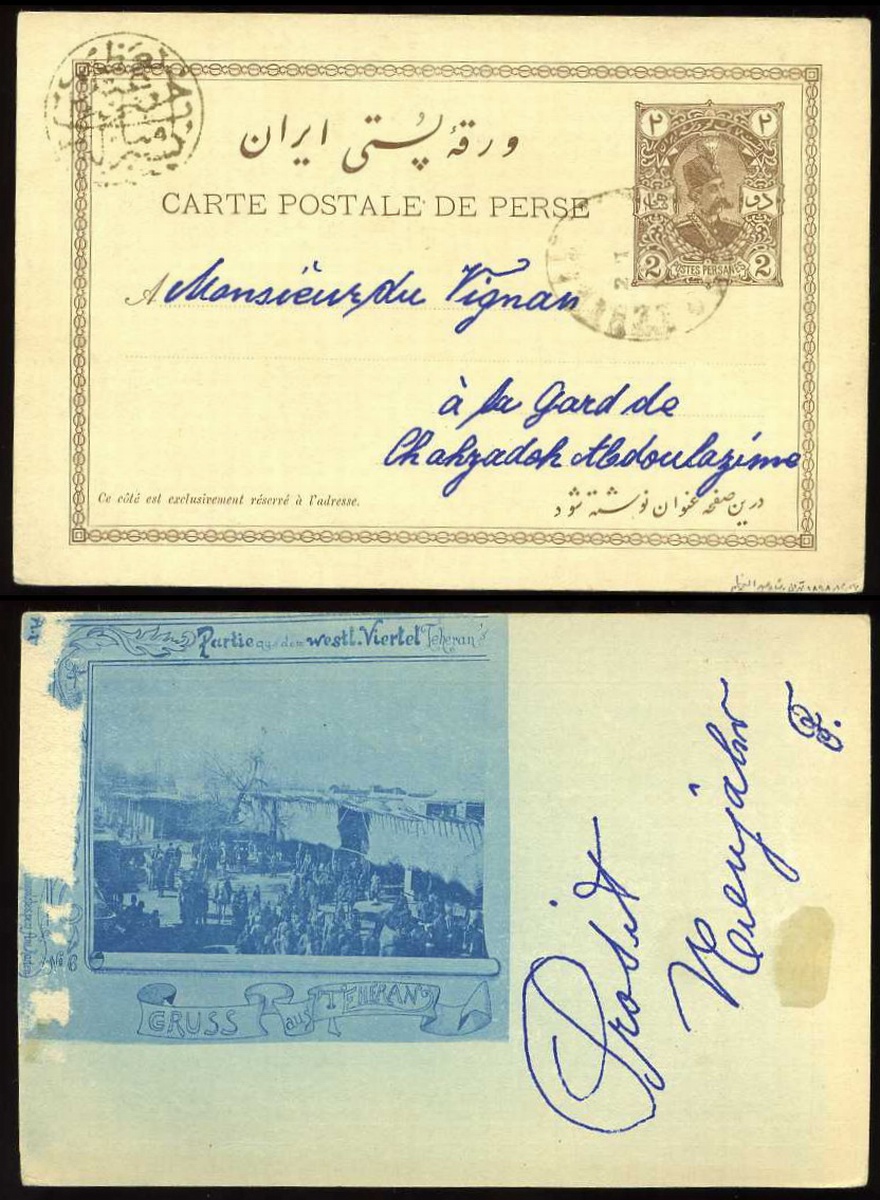 ورقهٔ پُستی ایران
CARTE POSTALE DE PERSE
۲ ۲
دو
2 POSTES PERSANES 2
A Monsieur du Vignan
à la Gard de
Chahzadeh Abdoulazime
Ce côté est exclusivement réservé à l'adresse.
درین صفحه عنوان نوشته شود
Partie aus dem westl. Viertel Teheran's
No 6
GRUSS aus TEHERAN
Prosit
Neujahr